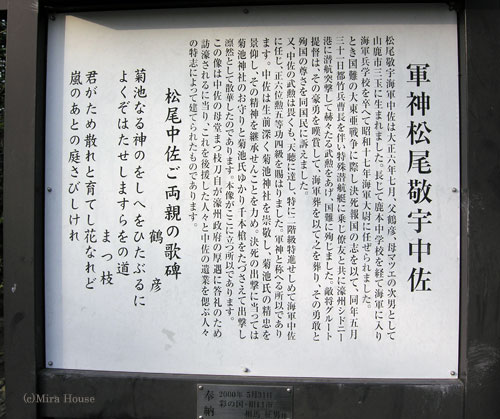 軍神松尾敬宇中佐
松尾敬宇海軍中佐は大正六年七月、父鶴彦、母マツエの次男として
山鹿市三玉に生まれました。長じて鹿本中学校を経て海軍に入り
海軍兵学校を卒へて昭和十七年海軍大尉に任ぜられました。
とき国難の大東亜戦争に際し決死報国の志を以て、同年五月
三十一日都竹兵曹長を伴い特殊潜航艇に乗じ僚友と共に濠州シドニー
港に潜航突撃して赫々たる武勲をあげ、国難に殉じました。敵将グルート
提督は、その豪勇を嘆賞して、海軍葬を以て之を葬り、その勇敢と
殉国の尊さを同国民に訴えました。
又、中佐の武勲は畏くも、天聴に達し、特に二階級特進せしめて海軍中佐
に任じ、正六位勲五等功四級を賜はりました。軍神と称へる所以であり
ます。中佐は生前深く菊池神社を崇敬し、菊池氏の精忠を
景仰し、その精神を継承せんことを力め、決死の出撃に当っては
菊池神社のお守りと菊池氏ゆかり千本槍をたづさえて出撃し
凛然として散華したのであります。本像がここに立つ所以であります。
この像は中佐の母堂まつ枝刀自が濠州政府の厚遇に答礼のため
訪濠されるに当り、これを後援した人々と中佐の遺業を偲ぶ人々
の特志によって建てられたものであります。
松尾中佐ご両親の歌碑
鶴彦
菊池なる神のをしへをひたぶるに
よくぞはたせしますらをの道
まつ枝
君がため散れと育てし花なれど
嵐のあとの庭さびしけれ
奉納
2000年 5月31日
彩の国・川口市
(c)Mira House